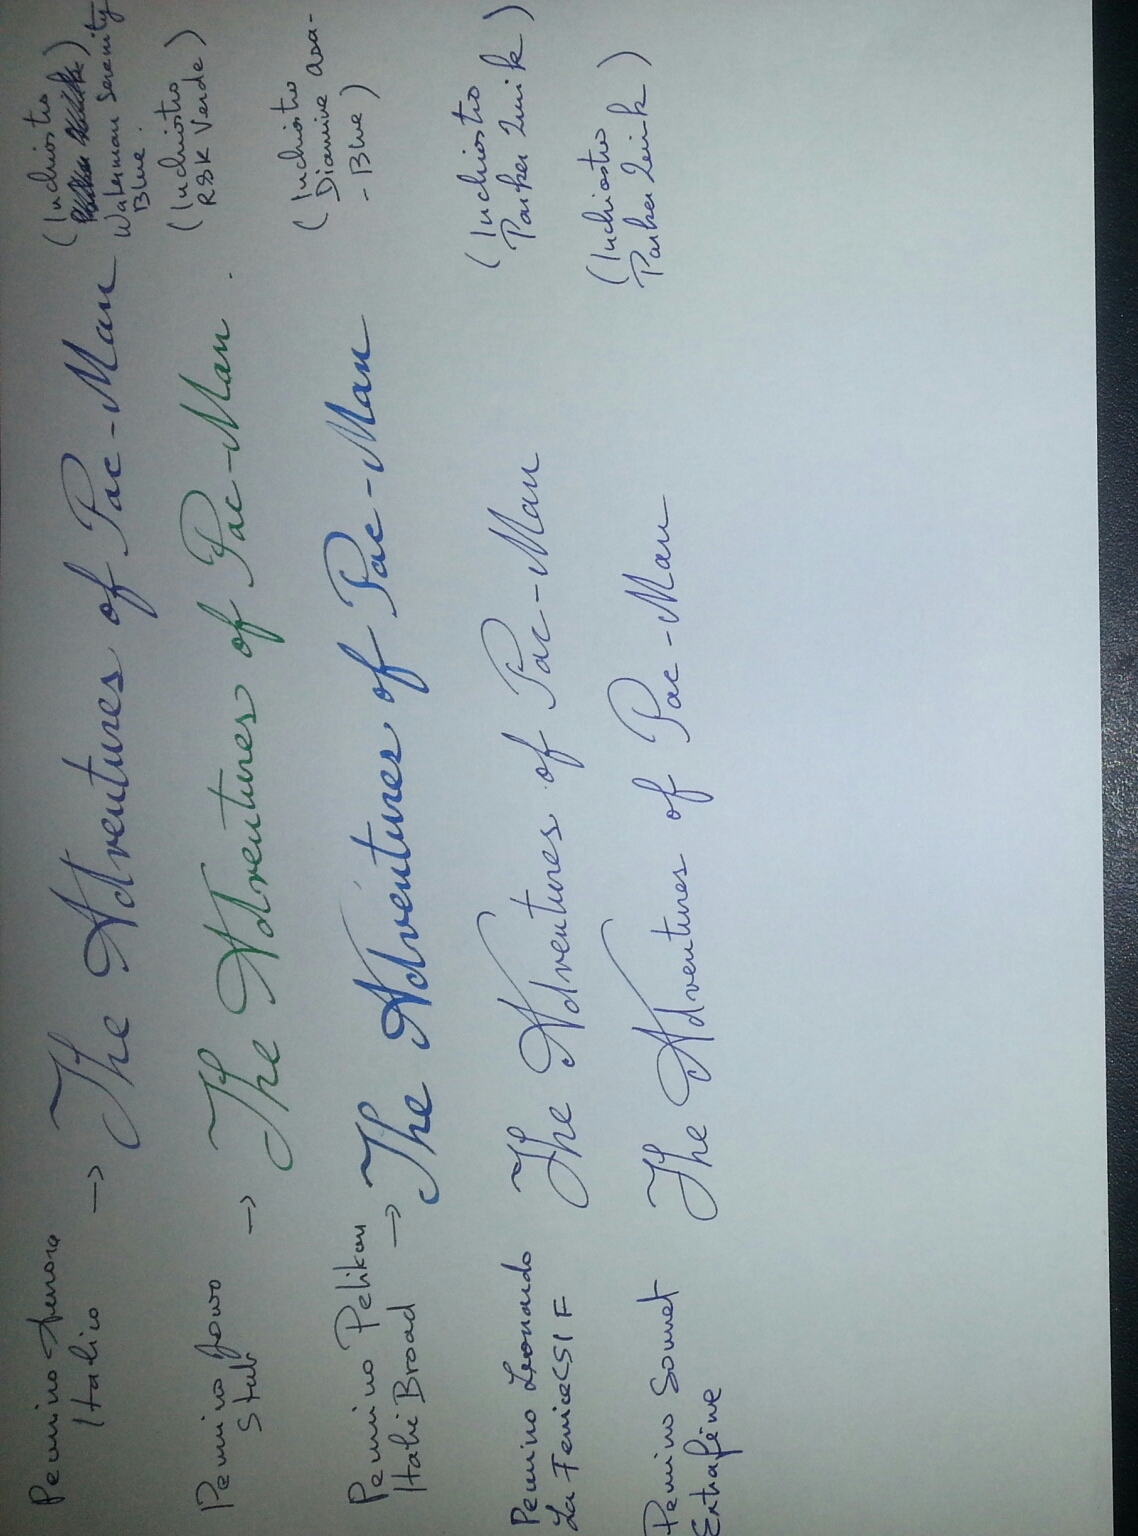 Pennino Aurora
Italico → The Adventures of Pac-Man (Inchiostro
Waterman Serenity
Blue.
Pennino Jowo
Stub → The Adventures of Pac-Man. (Inchiostro
R&K Verde)
Pennino Pelikan
Italic Broad → The Adventures of Pac-Man (Inchiostro
Diamine Asa-
-Blue)
Pennino Leonardo
La Fenice CSI F The Adventures of Pac-Man (Inchiostro
Parker Quink)
Pennino Sonnet
Extrafine The Adventures of Pac-Man (Inchiostro
Parker Quink)